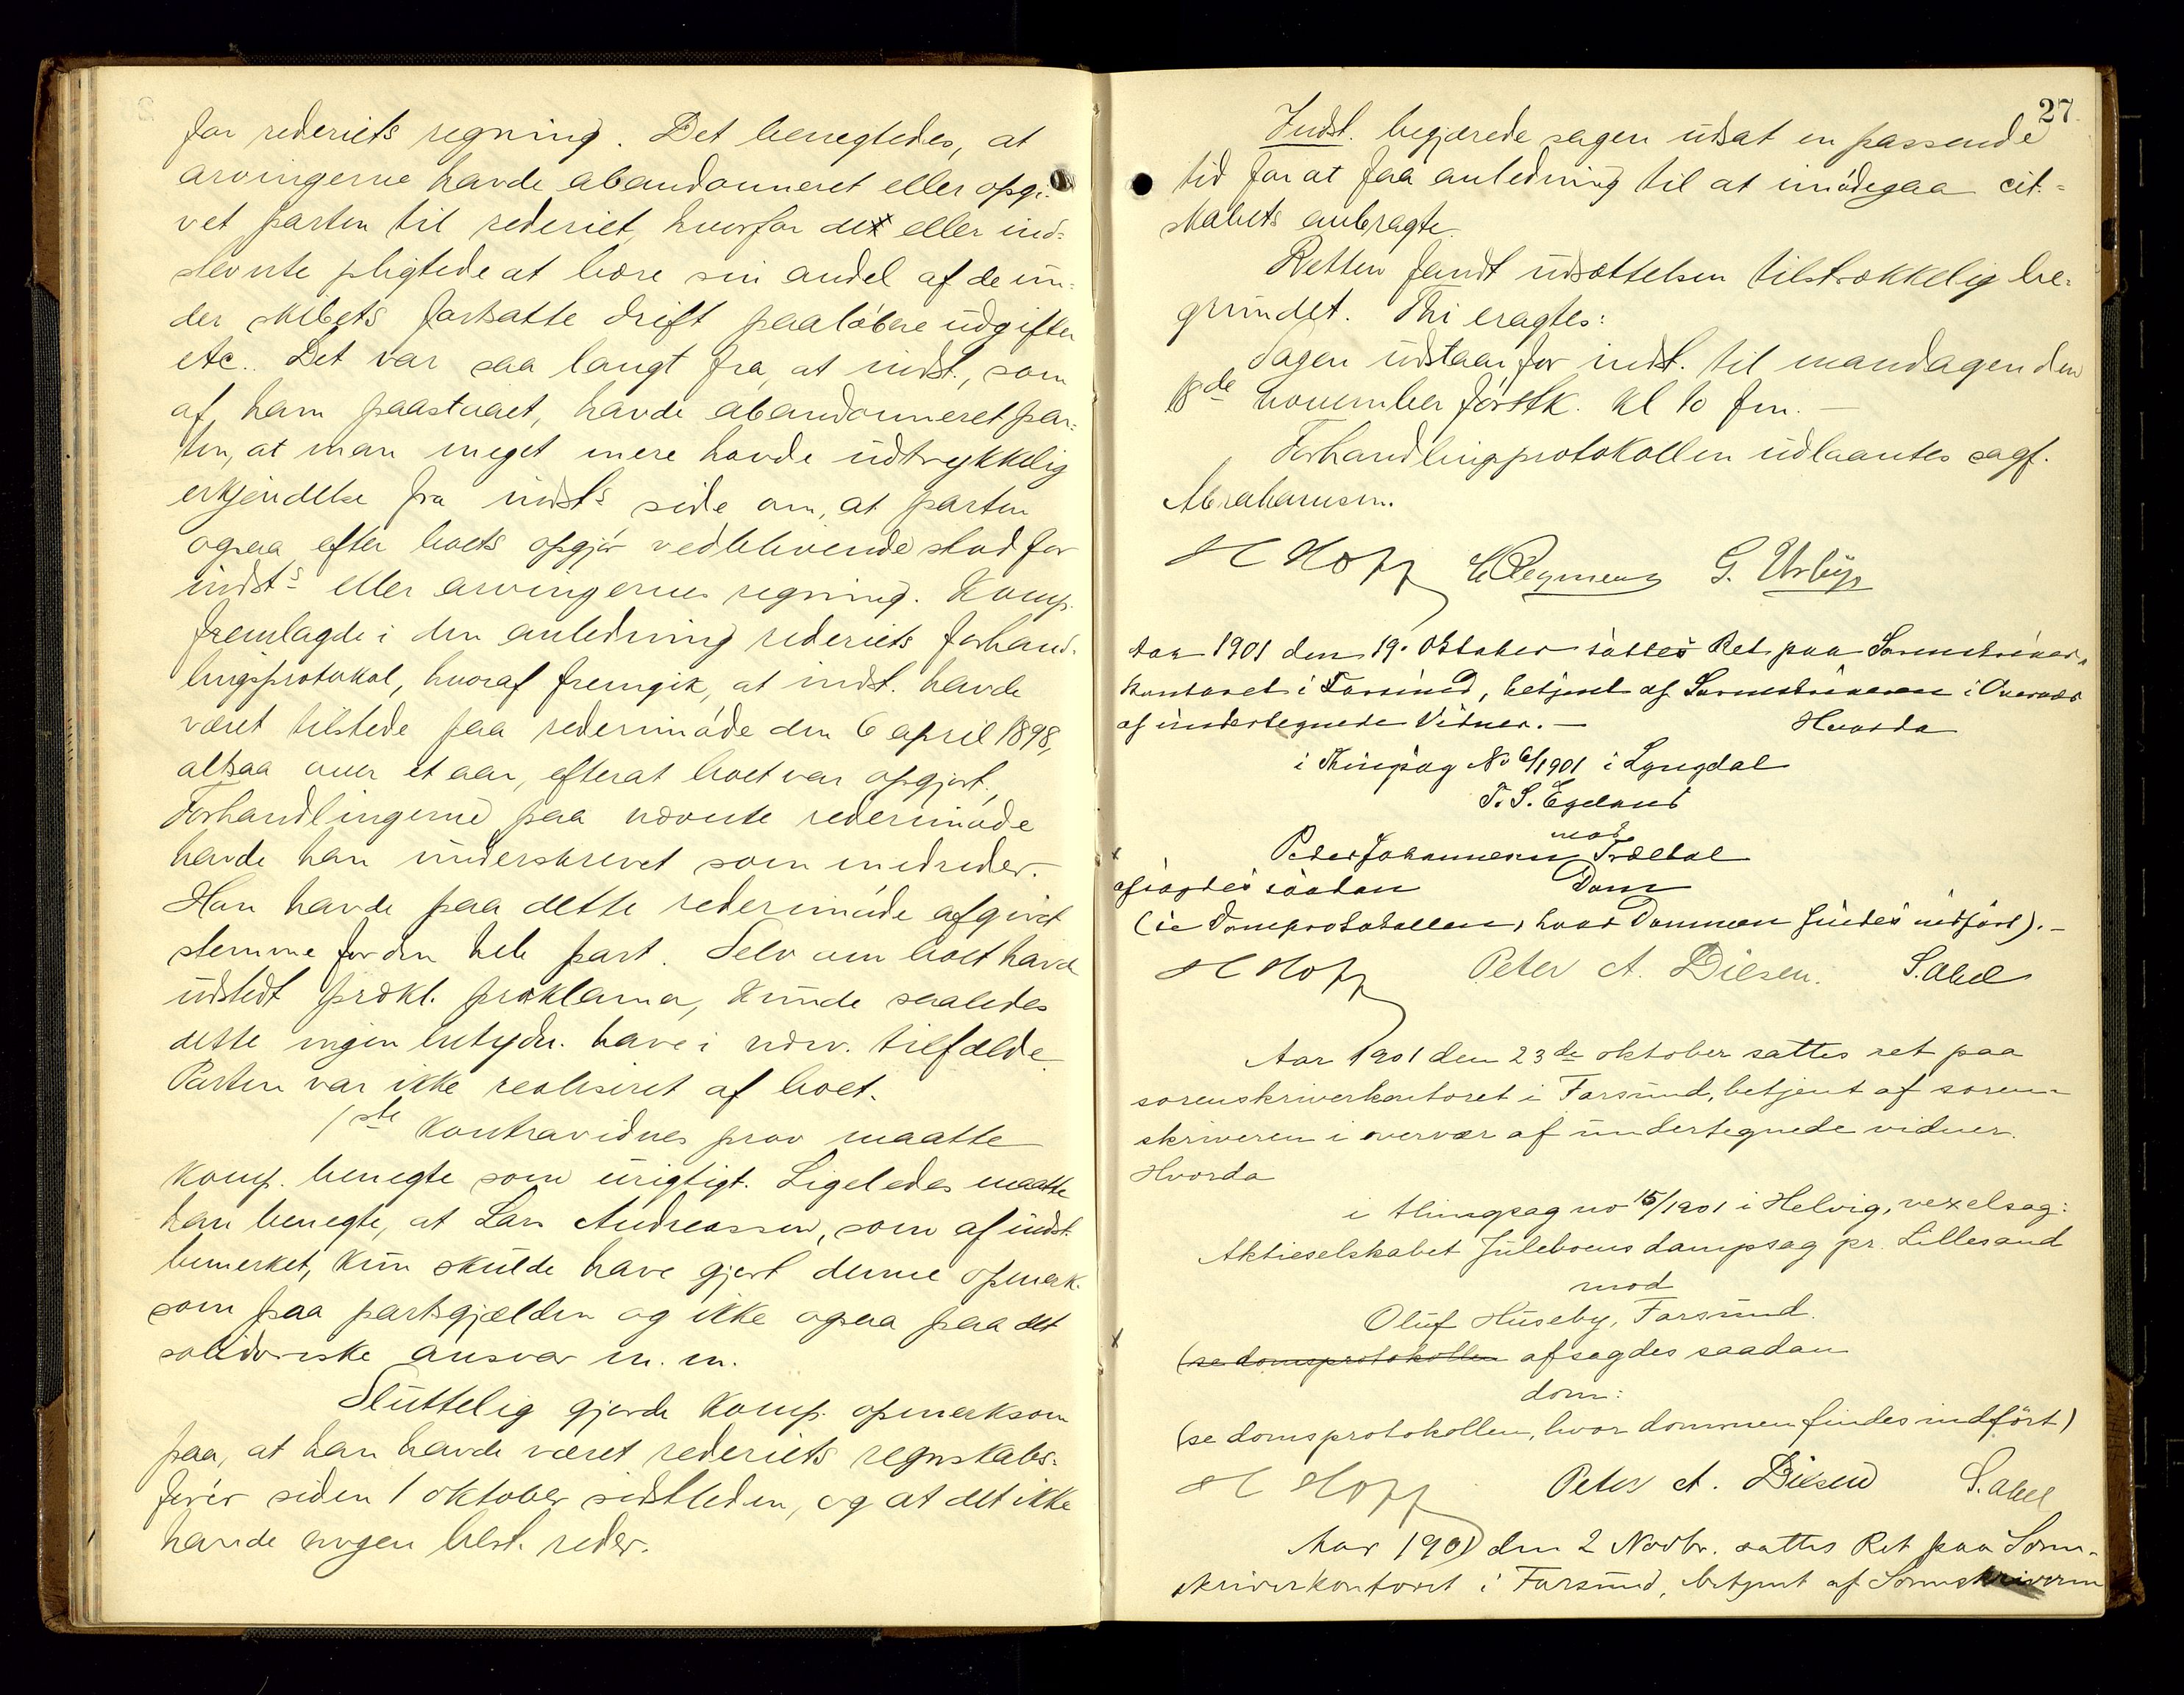 for rederiets regning. Det benegtedes, at
arvingerne havde abandonneret eller opgi-
vet parten til rederiet, hvorfor de eller ind-
stevnte pligtede at bære sin andel af de un-
der skibets fortsatte drift paaløbne udgifter
etc.. Det var saa langt fra, at indst., som
af ham paastaaet, havde abandonneret par-
ten, at man meget mere havde udtrykkelig
erkjendelse fra indsts side om, at parten
ogsaa efter boets opgjør vedblivende stod for
indsts eller arvingernes regning. Komp.
fremlagde i den anledning rederiets forhand-
lingsprotokol, hvoraf fremgik, at indst. havde
været tilstede paa rederimøde den 6 april 1898,
altsaa over et aar, efterat boet var opgjort.
Forhandlingerne paa nævnte rederimøde
havde han underskrevet som medreder.
Han havde paa dette rederimøde afgivet
stemme for den hele part. Selv om boet havde
udstedt prækl. proklama, kunde saaledes
dette ingen betydn. have i nærv. tilfælde.
Parten var ikke realiseret af boet.
1ste kontravidnes prov maatte
komp. benegte som urigtigt. Ligeledes maatte
han benegte, at Lars Andreassen, som af indst.
bemerket, kun skulde have gjort denne opmerk-
som paa partsgjælden og ikke ogsaa paa det
solidariske ansvar m. m.
Sluttelig gjorde komp. opmerksom
paa, at han havde været rederiets regnskabs-
fører siden 1 oktober sidstleden, og at det ikke
havde nogen best. reder.
27.
Indst. begjærede sagen udsat en passende
tid for at faa anledning til at imødegaa cit-
skabets anbragte.
Retten fandt udsættelsen tilstrækkelig be-
grundet. Thi eragtes:
Sagen udstaar for indst. til mandagen den
18de november førstk. kl 10 fm. —
Forhandlingsprotokollen udlaantes sagf.
Abrahamsen.
H Hopp G. Urbye
Aar 1901 den 19. Oktober sattes Ret paa Sorenskriver-
kontoret i Farsund, betjent af Sorenskriveren i Overvær
af undertegnede Vidner. — Hvorda
i Thingsag No 6/1901 i Lyngdal
T. S. Egeland
mod
Peder Johannesen Trældal
afsagdes saadan Dom
(se Domsprotokollen, hvor Dommen findes indført). —
H Hopp Peter A. Diesen. S. Abel
Aar 1901 den 23de oktober sattes ret paa
sorenskriverkontoret i Farsund, betjent af soren-
skriveren i overvær af undertegnede vidner.
Hvorda
i thingsag no 15/1901 i Helvig, vexelsag:
Aktieselskabet Juleboens dampsag pr. Lillesand
mod
Oluf Huseby, Farsund.
(se domsprotokollen afsagdes saadan
dom:
(se domsprotokollen, hvor dommen findes indført)
H Hopp Peter A. Diesen S. Abel
Aar 1901 den 2 Novbr. sattes Ret paa Soren-
skriverkontoret i Farsund, betjent af Sorenskriveren